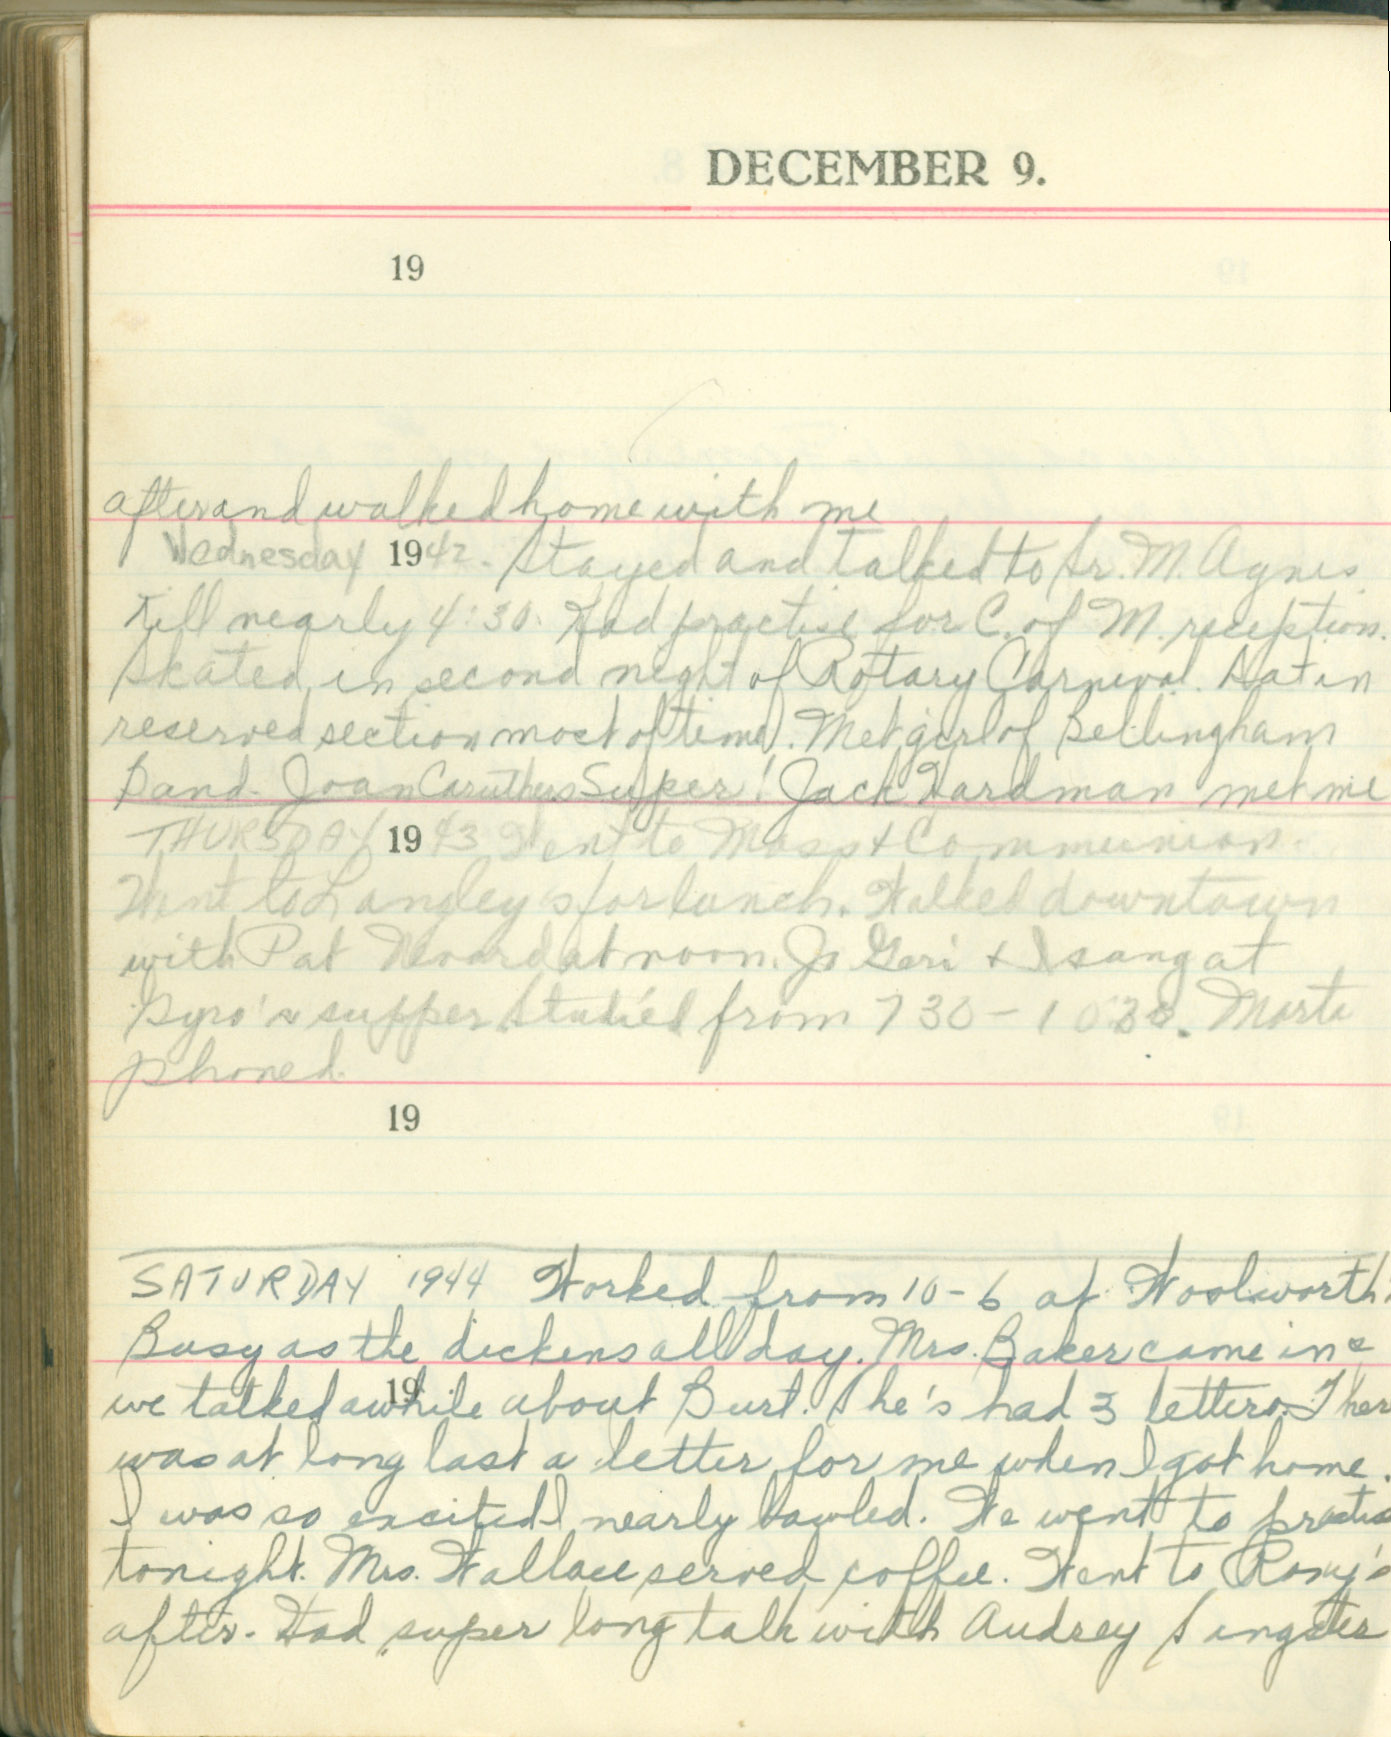 DECEMBER 9.
19
after and walked home with me
Wednesday 1942. Stayed and talked to Sr. M. Agnes
till nearly 4:30. Had practise for C. of M. reception.
Skated in second night of Rotary Carnival. Sat in
reserved section most of time. Met girl of Bellingham
Band - Joan Caruthers Super! Jack Hardman met me
THURSDAY 1943 Went to Mass & Communion.
Went to Langley's for lunch. Walked downtown
with Pat at noon. Jo Geri & I sang at
Gyro's supper Studied from 730 - 1030. Marta
phoned.
19
SATURDAY 1944 Worked from 10-6 at Woolworth
Busy as the dickens all day. Mrs. Baker came in &
19
we talked awhile about Burt. She's had 3 letters. Ther
was at long last a letter for me when I got home.
I was so excited I nearly bawled. We went to practic
tonight. Mrs. Wallace served coffee. Went to Roxy's
after. Had super long talk with Audrey Sangster